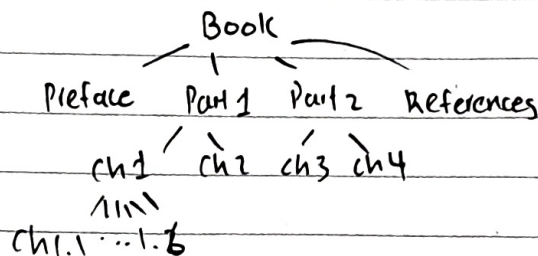 Book
Preface Part 1 Part 2 References
ch1 ch2 ch3 ch4
Ch1.1 ... 1.6